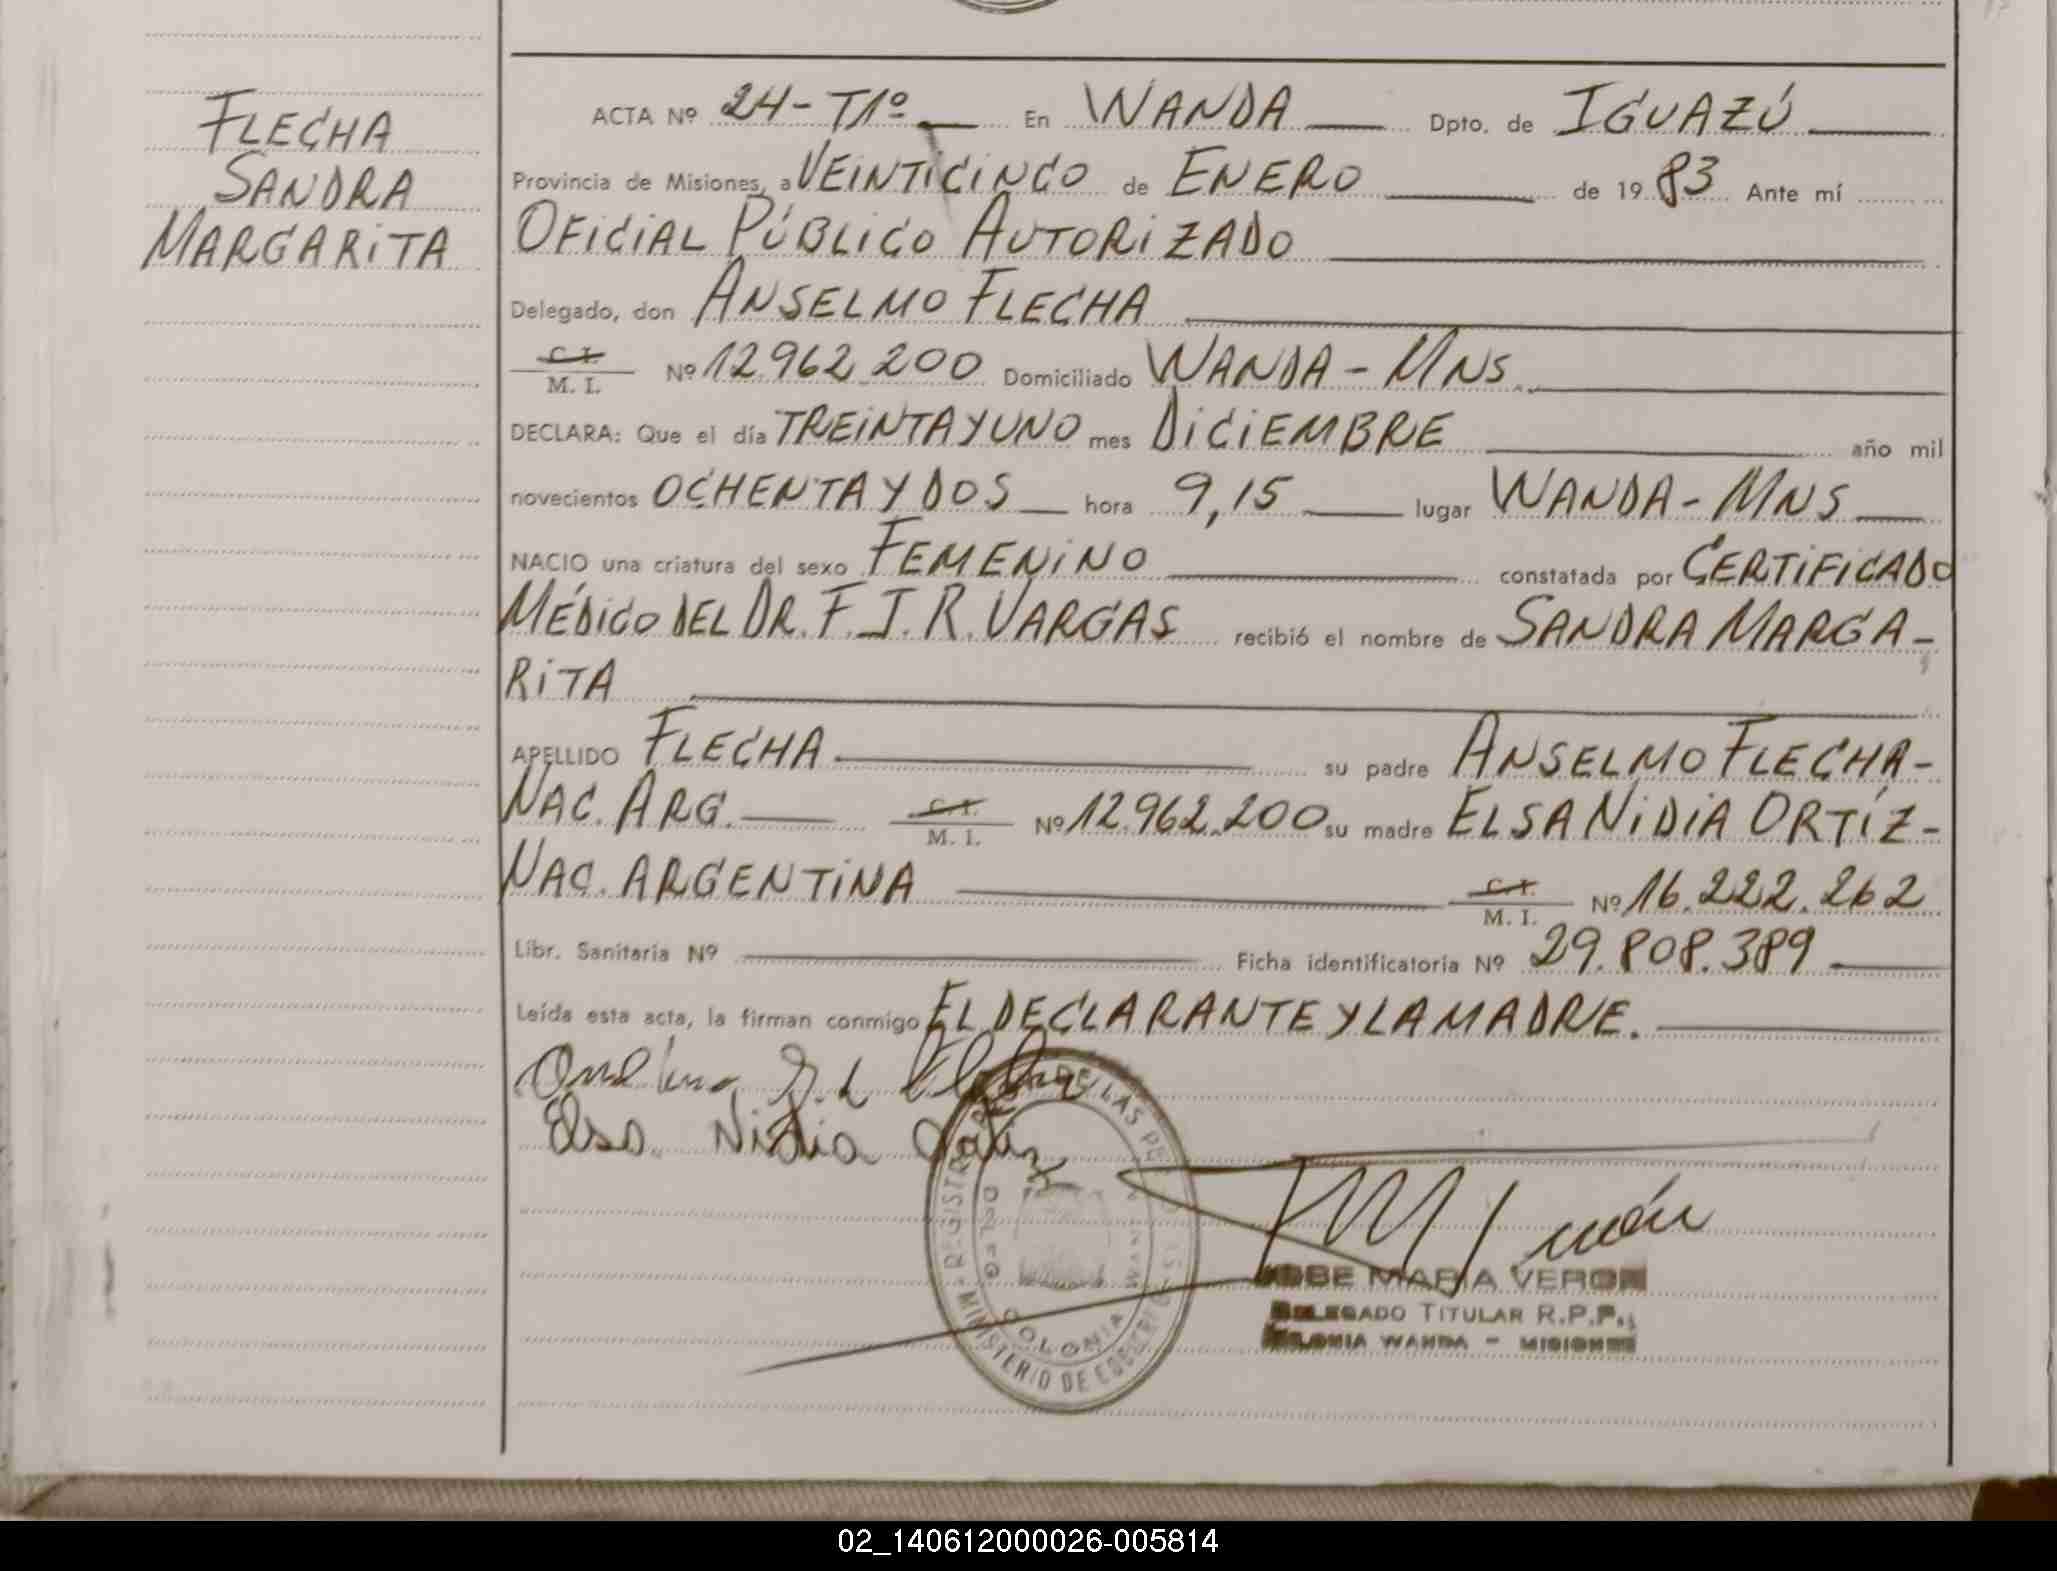 FLECHA
SANDRA
MARGARITA
ACTA Nº 24-T1º En WANDA Dpto. de IGUAZÚ
Provincia de Misiones, a VEINTICINCO de ENERO de 1983 Ante mí
OFICIAL PÚBLICO AUTORIZADO
Delegado, don ANSELMO FLECHA
C. I.
M. I. Nº 12.962.200 Domiciliado WANDA - MNS.
DECLARA: Que el día TREINTA Y UNO mes DICIEMBRE año mil
novecientos OCHENTA Y DOS hora 9,15 lugar WANDA - MNS
NACIO una criatura del sexo FEMENINO constatada por CERTIFICADO
MÉDICO DEL DR. F. J. R. VARGAS recibió el nombre de SANDRA MARGA-
RITA
APELLIDO FLECHA su padre ANSELMO FLECHA-
NAC. ARG. C. I. M. I. Nº 12.962.200 su madre ELSA NIDIA ORTÍZ-
NAC. ARGENTINA C. I. M. I. Nº 16.222.262
Libr. Sanitaria Nº Ficha identificatoria Nº 29.808.389
Leída esta acta, la firman conmigo EL DECLARANTE Y LA MADRE.
Elsa Nidia Ortiz
REGISTRO DE LAS
MINISTERIO DE
COLONIA WANDA
JOSE MARIA VERON
DELEGADO TITULAR R.P.P.
COLONIA WANDA - MISIONES
02_140612000026-005814